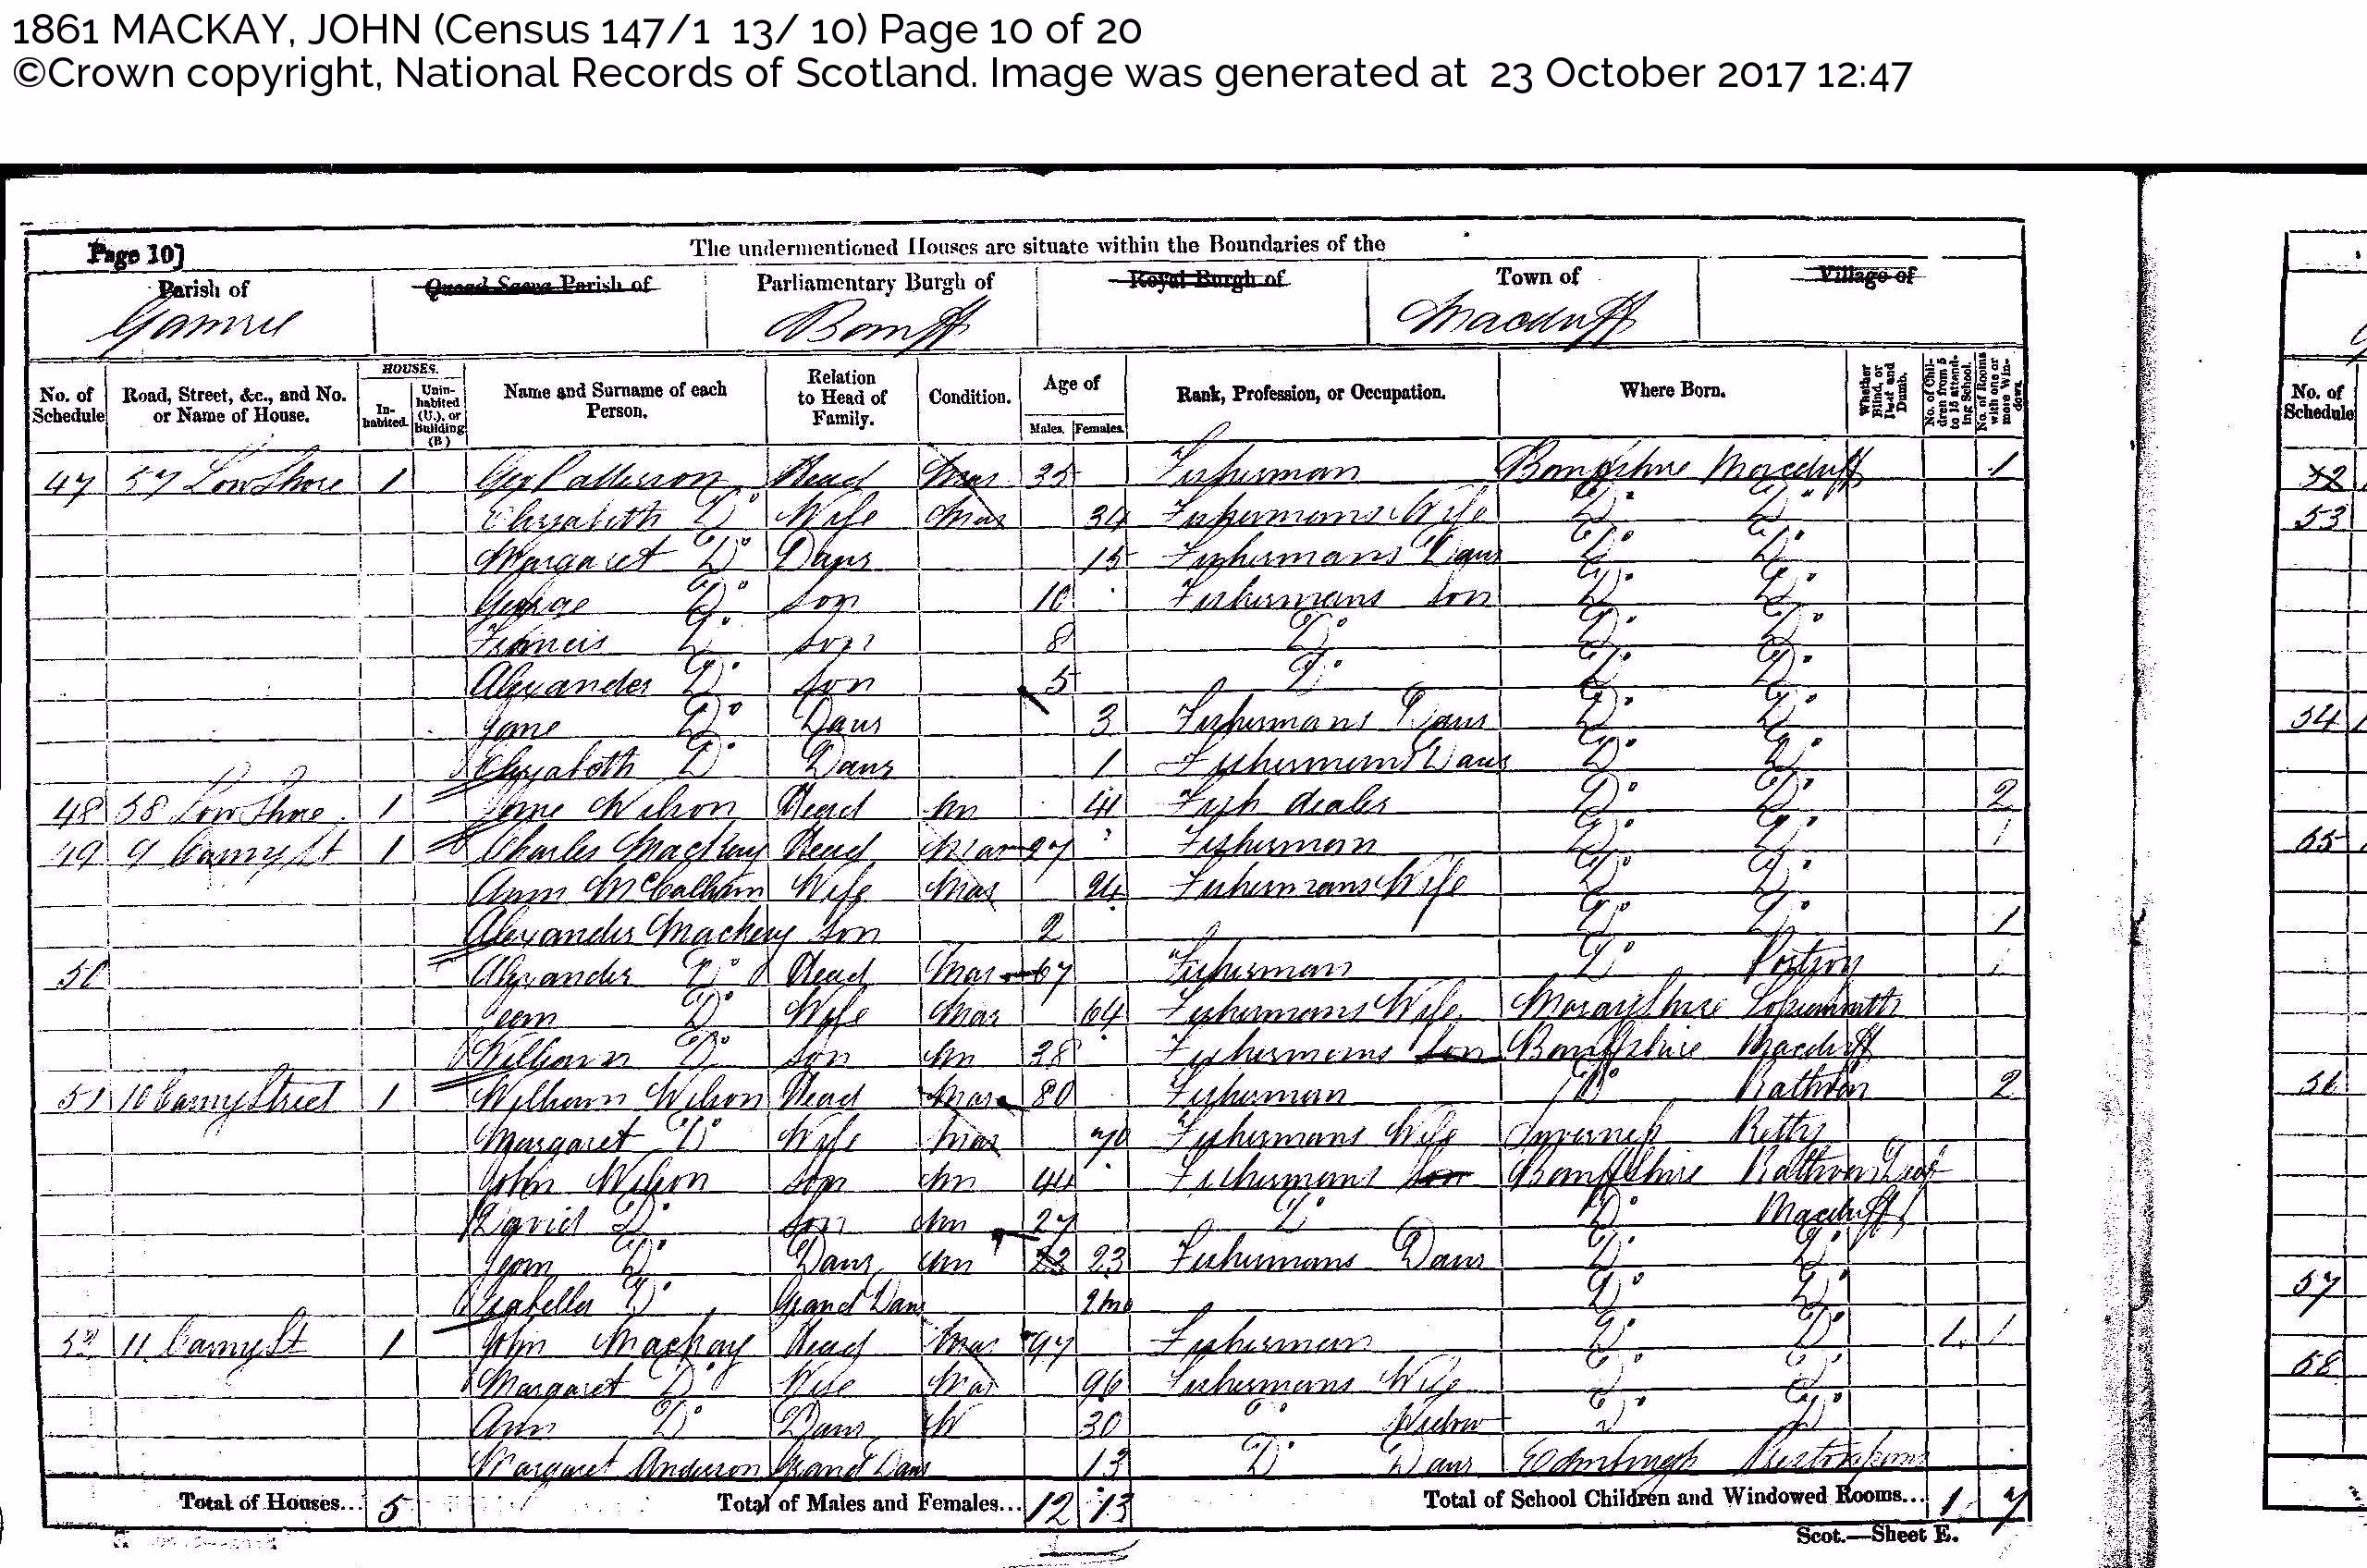 1861 MACKAY, JOHN (Census 147/1 13/ 10) Page 10 of 20
©Crown copyright, National Records of Scotland. Image was generated at 23 October 2017 12:47
Page 10] The undermentioned Houses are situate within the Boundaries of the
Parish of Quoad Sacra Parish of Parliamentary Burgh of Royal Burgh of Town of Village of
Gamrie Banff Macduff
No. of Schedule Road, Street, &c., and No. or Name of House. HOUSES. Inhabited. Uninhabited (U.), or Building (B) Name and Surname of each Person. Relation to Head of Family. Condition. Age of Males. Females. Rank, Profession, or Occupation. Where Born. Whether Blind, or Deaf and Dumb. No. of Children from 5 to 15 attending School. No. of Rooms with one or more Windows. No. of Schedule
47 57 Low Shore 1 Geo Patterson Head Mar 35 Fisherman Banffshire Macduff 1
Elizabeth Do Wife Mar 34 Fishermans Wife Do Do 53
Margaret Do Daur 15 Fishermans Daur Do Do
George Do Son 10 Fishermans Son Do Do
Francis Do Son 8 Do Do Do
Alexander Do Son 5 Do Do Do
Jane Do Daur 3 Fishermans Daur Do Do 54
Elizabeth Do Daur 1 Fishermans Daur Do Do
48 58 Low Shore 1 Jane Wilson Head Un 41 Fish dealer Do Do 2
49 9 St 1 Charles Mackay Head Mar 27 Fisherman Do Do 1 55
Ann Wife Mar 24 Fishermans Wife Do Do
Alexander Mackay Son 2 Do Do 1
50 Alexander Do Head Mar 67 Fisherman Do 1
Jean Do Wife Mar 64 Fishermans Wife Morayshire
William Do Son Un 38 Fishermans Son Banffshire Macduff
51 10 Street 1 William Wilson Head Mar 80 Fisherman Do Rathven 2 56
Margaret Do Wife Mar 70 Fishermans Wife Inverness Petty
John Wilson Son Un 44 Fishermans Son Banffshire Rathven
David Do Son Un 27 Do Do Macduff
Jean Do Daur Un 23 Fishermans Daur Do Do
Isabella Do Grand Daur 2mo Do Do 57
52 11 St 1 John Mackay Head Mar 97 Fisherman Do Do 1 1
Margaret Do Wife Mar 96 Fishermans Wife Do Do 58
Ann Do Daur W 30 Do Widow Do Do
Margaret Anderson Grand Daur 13 Do Daur Edinburgh
Total of Houses... 5 Total of Males and Females... 12 13 Total of School Children and Windowed Rooms... 1 7
Scot.—Sheet E.